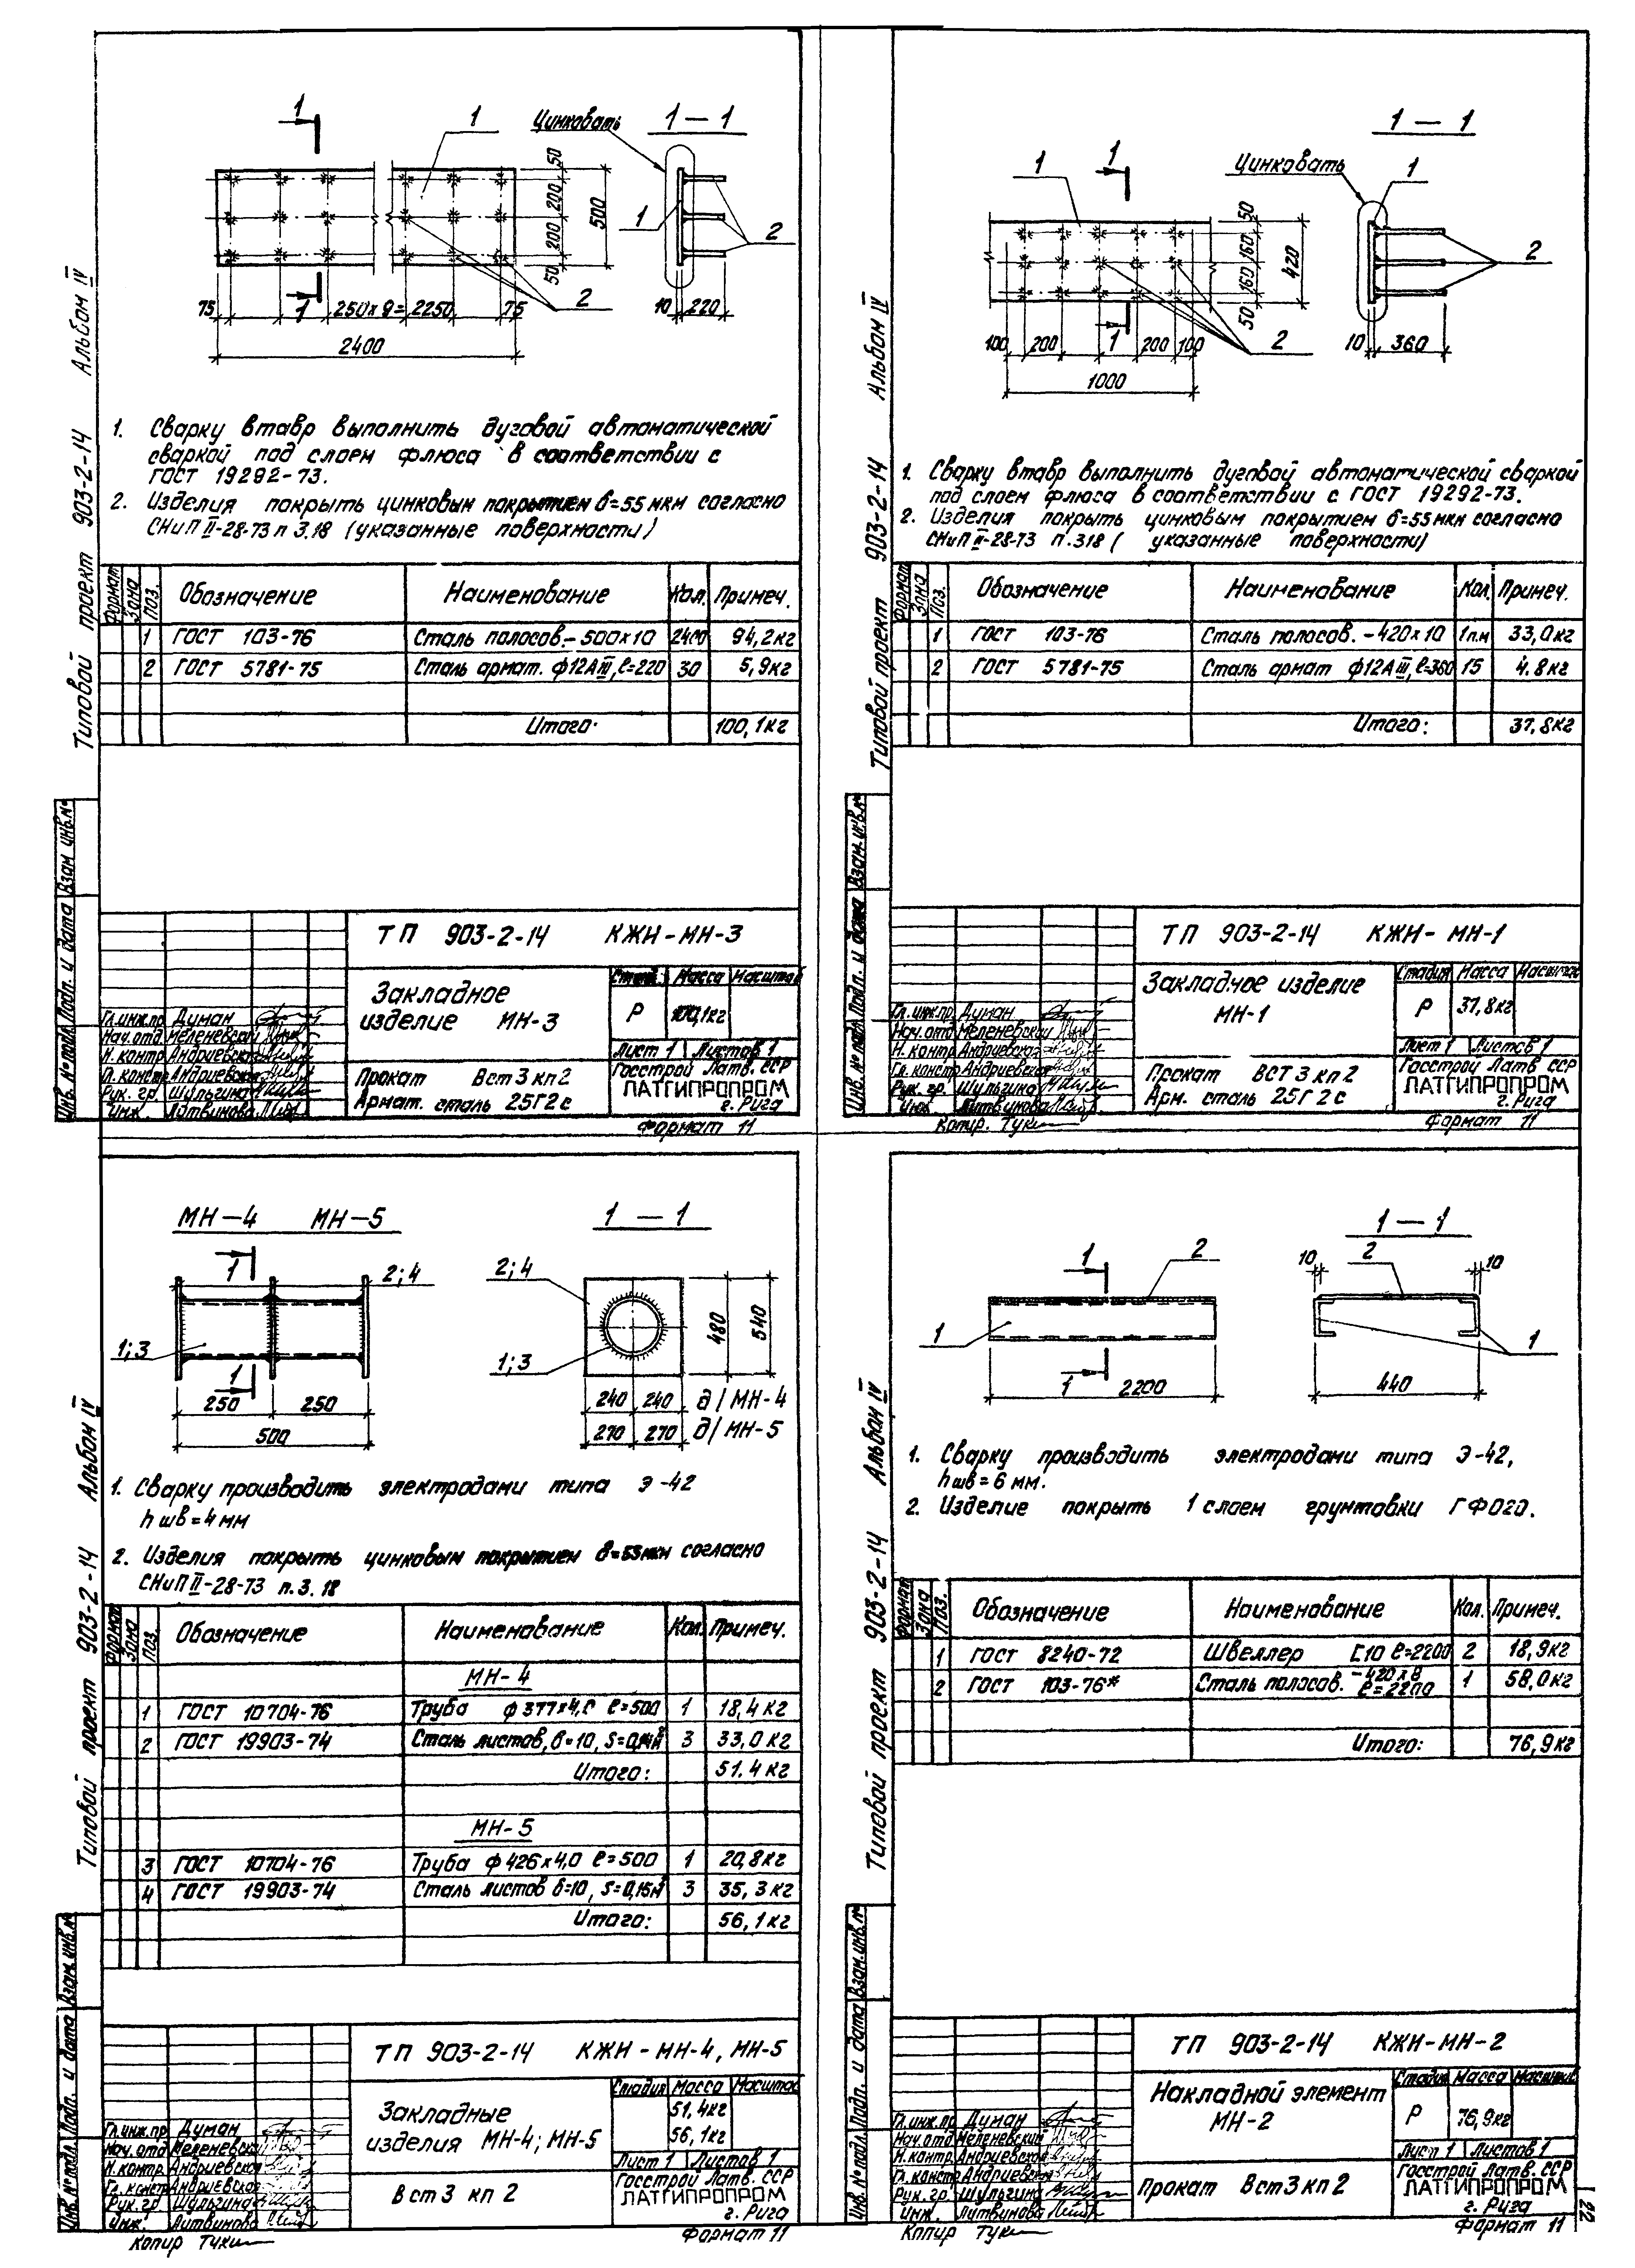 Типовой проект 903-2-14 Альбом IV
1
1
Цинковать
1 — 1
50
200
200
50
500
1
2
1
2
75
250х9=2250
75
10
220
2400
1. Сварку втавр выполнить дуговой автоматической
сваркой под слоем флюса в соответствии с
ГОСТ 19292-73.
2. Изделия покрыть цинковым покрытием б=55мкм согласно
СНиП II-28-73 п 3.18 (указанные поверхности)
Формат Зона Поз. Обозначение Наименование Кол. Примеч.
1 ГОСТ 103-76 Сталь полосов.-500х10 2400 94,2кг
2 ГОСТ 5781-75 Сталь армат. ф12АIII, ℓ=220 30 5,9кг
Итого: 100,1кг
ТП 903-2-14 КЖИ-МН-3
Закладное
изделие МН-3
Стад. Масса Масштаб
Р 100,1кг
Лист 1 Листов 1
Гл.инж.пр Думан
Нач.отд Меленевский
Н. контр Андриевская
Гл. констр Андриевская
Рук. гр. Шульгина
Инж. Литвинова
Прокат Вст 3 кп2
Армат. сталь 25Г2с
Госстрой Латв. ССР
ЛАТГИПРОПРОМ
г. Рига
Формат 11
Инв. № подл. Подп. и дата Взам. инв.№
Типовой проект 903-2-14 Альбом IV
1 — 1
1
1
Цинковать
1
50
160
160
50
420
2
100
200
1
200
100
2
10
360
1000
1. Сварку втавр выполнить дуговой автоматической сваркой
под слоем флюса в соответствии с ГОСТ 19292-73.
2. Изделия покрыть цинковым покрытием б=55мкм согласно
СНиП II-28-73 п.318 ( указанные поверхности)
Формат Зона Поз. Обозначение Наименование Кол. Примеч.
1 ГОСТ 103-76 Сталь полосов. -420х10 1п.м 33,0кг
2 ГОСТ 5781-75 Сталь армат ф12АIII, ℓ=360 15 4.8кг
Итого: 37,8кг
ТП 903-2-14 КЖИ- МН-1
Закладное изделие
МН-1
Стадия Масса Масштаб
Р 37,8кг
Лист 1 Листов 1
Гл.инж.пр Думан
Нач.отд Меленевский
Н. контр Андриевская
Гл. констр Андриевская
Рук. гр. Шульгина
Инж. Литвинова
Прокат ВСТ 3 кп2
Арм. сталь 25Г2с
Госстрой Латв ССР
ЛАТГИПРОПРОМ
г. Рига
Копир. Тукин
Формат 11
Инв. № подл. Подп. и дата Взам. инв.№
Типовой проект 903-2-14 Альбом IV
МН-4 МН-5
1 — 1
1
2;4
2;4
480
540
1;3
1
1;3
250
250
500
240 240 д/МН-4
270 270 д/МН-5
1. Сварку производить электродами типа Э-42
h шв=4мм
2. Изделия покрыть цинковым покрытием б=55мкм согласно
СНиП II-28-73 п.3.18
Формат Зона Поз. Обозначение Наименование Кол. Примеч.
МН-4
1 ГОСТ 10704-76 Труба ф377х4,0 ℓ=500 1 18,4кг
2 ГОСТ 19903-74 Сталь листов, б=10, S=0,14м² 3 33,0кг
Итого: 51.4кг
МН-5
3 ГОСТ 10704-76 Труба ф426х4,0 ℓ=500 1 20,8кг
4 ГОСТ 19903-74 Сталь листов б=10, S=0,15м² 3 35,3кг
Итого: 56,1кг
ТП 903-2-14 КЖИ - МН-4, МН-5
Закладные
изделия МН-4; МН-5
Стадия Масса Масштаб
51.4кг
56,1кг
Лист 1 Листов 1
Гл.инж.пр Думан
Нач.отд Меленевский
Н.контр. Андриевская
Гл. констр Андриевская
Рук.гр. Шульгина
Инж. Литвинова
Вст3 кп2
Госстрой Латв. ССР
ЛАТГИПРОПРОМ
г. Рига
Копир Тукин
Формат 11
Инв. № подл. Подп. и дата Взам. инв.№
Типовой проект 903-2-14 Альбом IV
1 — 1
1
2
10
2
10
1
1
1
2200
440
1. Сварку производить электродами типа Э-42,
h шв=6мм.
2. Изделие покрыть 1 слоем грунтовки ГФ020.
Формат Зона Поз. Обозначение Наименование Кол. Примеч.
1 ГОСТ 8240-72 Швеллер [10 ℓ=2200 2 18,9кг
2 ГОСТ 103-76* Сталь полосов. -420х8 ℓ=2200 1 58,0кг
Итого: 76,9кг
ТП 903-2-14 КЖИ-МН-2
Накладной элемент
МН-2
Стадия Масса Масштаб
Р 76,9кг
Лист 1 Листов 1
Гл.инж.пр Думан
Нач.отд Меленевский
Н.контр Андриевская
Гл. констр Андриевская
Рук.гр. Шульгина
Инж. Литвинова
Прокат Вст3кп2
Госстрой Латв. ССР
ЛАТГИПРОПРОМ
г. Рига
Копир Тукин
Формат 11
Инв. № подл. Подп. и дата Взам.инв.№
22